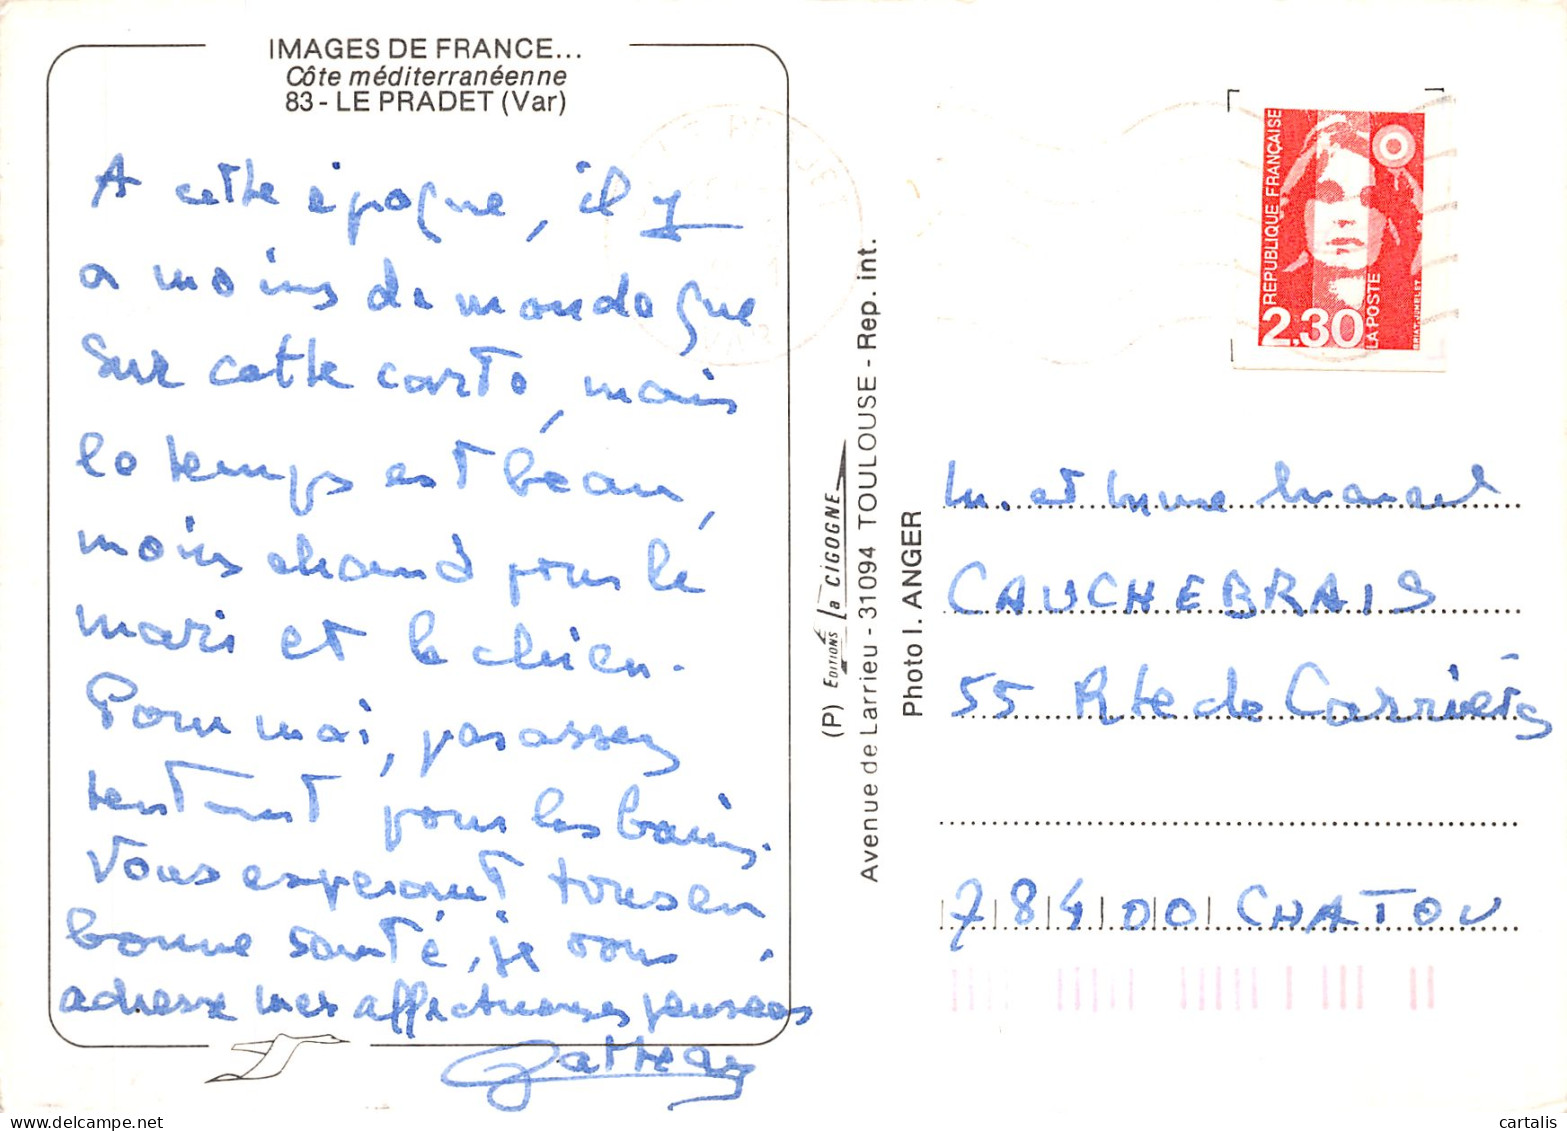 IMAGES DE FRANCE...
Côte méditerranéenne
83 - LE PRADET (Var)
A cette époque, il y
a moins de monde que
sur cette carte, mais
le temps est beau,
moins chaud pour le
mari et le chien.
Pour moi, pas assez
tentant pour les bains.
Vous esperant tous en
bonne santé, je vous
adresse mes affectueuses pensées
(P) EDITIONS la CIGOGNE
Avenue de Larrieu - 31094 TOULOUSE - Rep. int.
Photo I. ANGER
REPUBLIQUE FRANÇAISE
2.30
LA POSTE
BRIAT-JUMELET
M. et Mme Marcel
CAUCHEBRAIS
55 Rte de Carrières
78400 CHATOU
cartalis